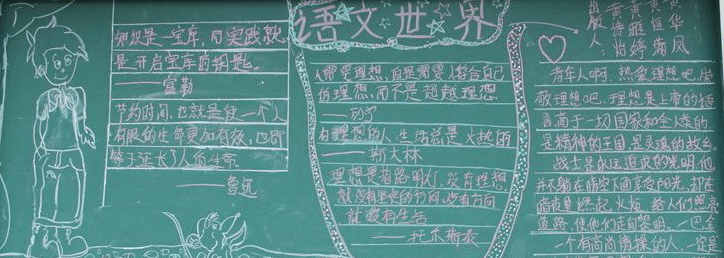 语文世界
知识是一宝库,而实践就
是开启宝库的钥匙。
——富勒
节约时间,也就是使一个人
有限的生命更加有效,也即
等于延长了人的生命
——鲁迅
人需要理想,但是需要人符合自己
的理想,而不是超越理想
有理想的人,生活总是火热的
——斯大林
理想是指路明灯,没有理想
就没有坚定的方向,没有方向
就没有生活
——托尔斯泰
出版人
青年人啊,热爱理想吧,崇
敬理想吧。理想是上帝的语
言高于一切国家和全人类的
是精神的王国是灵魂的故乡
战士是永远追求光明他
并不躺在晴空下面享受阳光,却在
暗夜里燃起火炬,给人们照亮
道路,使他们走向黎明
一个有高尚情操的人,一定是